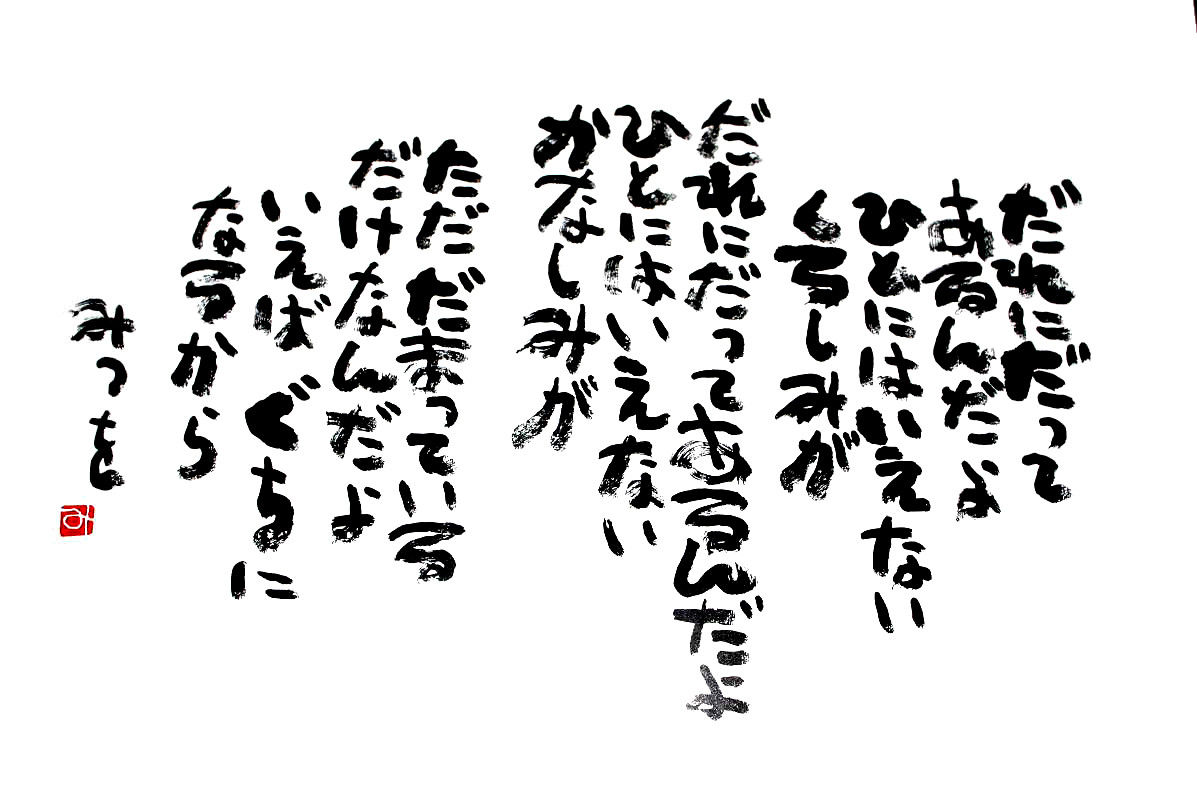 だれにだって
あるんだよ
ひとにはいえない
くるしみが
だれにだってあるんだよ
ひとにはいえない
かなしみが
ただだまっている
だけなんだよ
いえば ぐちに
なるから
みつを